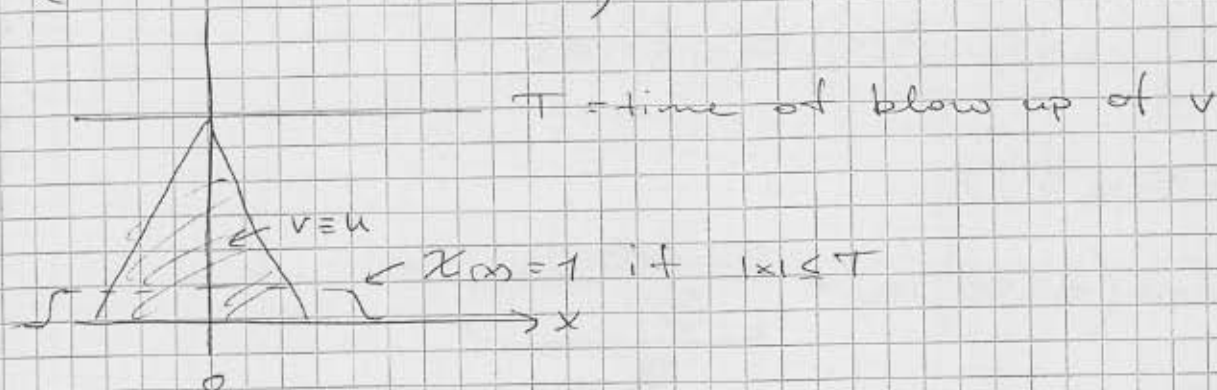 T = time of blow up of v
v ≡ u
χ(x) = 1 if |x| < T
x
0